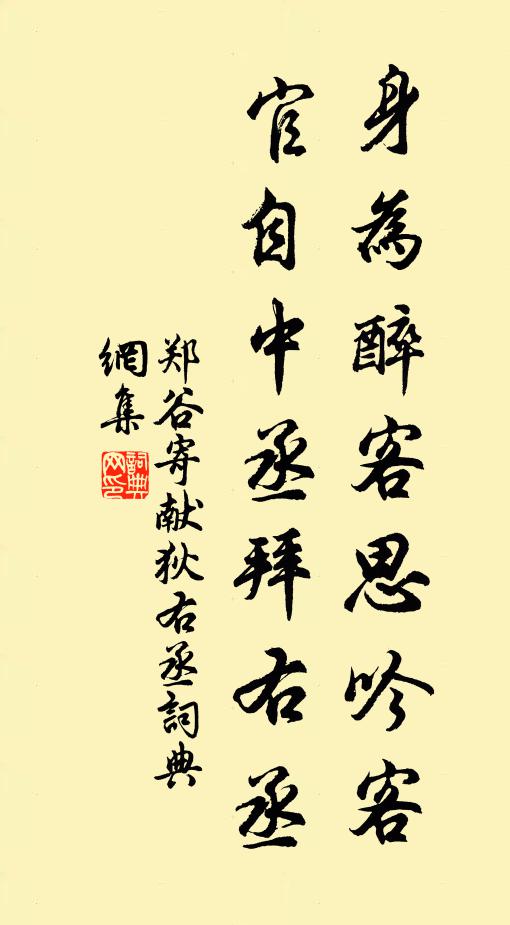 身為醉客思吟客
官自中丞拜右丞
郑谷寄献狄右丞詞典
網集
詞典
网印